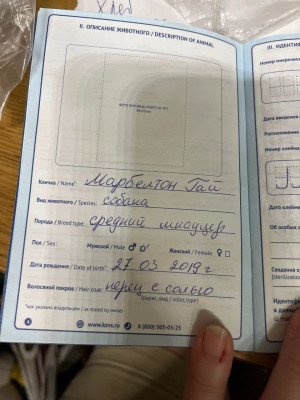 Хлеб
II. ОПИСАНИЕ ЖИВОТНОГО / DESCRIPTION OF ANIMAL
Кличка / Name* Марбелтон Гай
Вид животного / Species: собака
Порода / Breed type: средний шнауцер
Пол / Sex: Мужской / Male ♂ Женский / Female ♀
Дата рождения / Date of birth*: 27 03 2019 г
Волосяной покров / Hair coat: перец с солью
(окрас, вид / color, type)
*как указано владельцем / as stated by owner
4 www.kans.ru 8 (800) 503-03-25
III. ИДЕНТИ
Номер микрочипа
Дата введения
Расположение
Номер клейма
Дата клейме
Об особых
Сведения о
(sterilisation
Идентифи
в данно